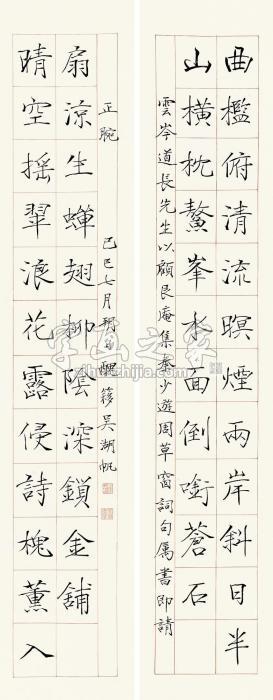 曲檻俯清流暝煙兩岸斜日半
山橫枕鰲峯水面倒銜蒼石
雲岑道長先生以顧艮庵集秦少遊周草窗詞句屬書即請
晴空搖翠浪花露侵詩槐薰入
扇涼生蟬翅柳陰深鎖金鋪
正腕 己巳七月朔句 醜簃吳湖帆
字画之家